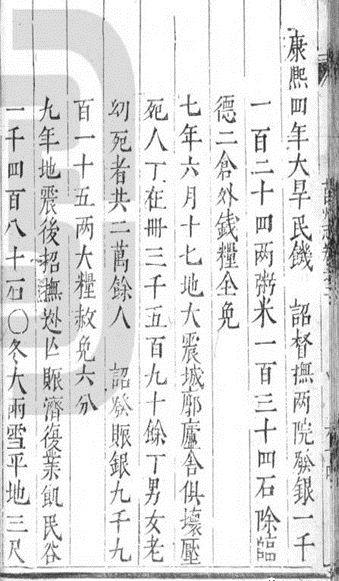 康熙四年大旱民饑　詔督撫两院發銀一千
一百二十四两粥米一百三十四石除臨
德二倉外錢糧全免
七年六月十七地大震城郭廬舍俱壞壓
死人丁在冊三千五百九十餘丁男女老
幼死者共二萬餘人　詔發賑銀九千九
百一十五两大糧赦免六分
九年地震後招撫逃亡賑濟復業飢民谷
一千四百八十一石〇冬大雨雪平地三尺